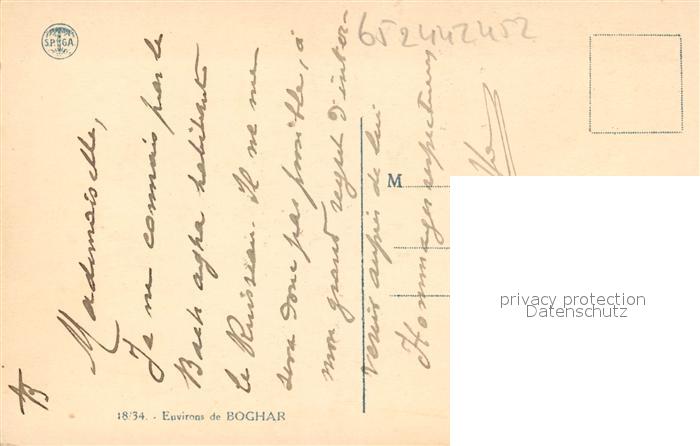 652442452
S.P.GA.
Mademoiselle,
Je ne connais pas le
Bach agha habitant
le Ruisseau. Il ne me
sera donc pas possible, à
mon grand regret d'inter-
venir auprès de lui
Hommages respectueux
M
18/34. - Environs de BOGHAR
privacy protection
Datenschutz